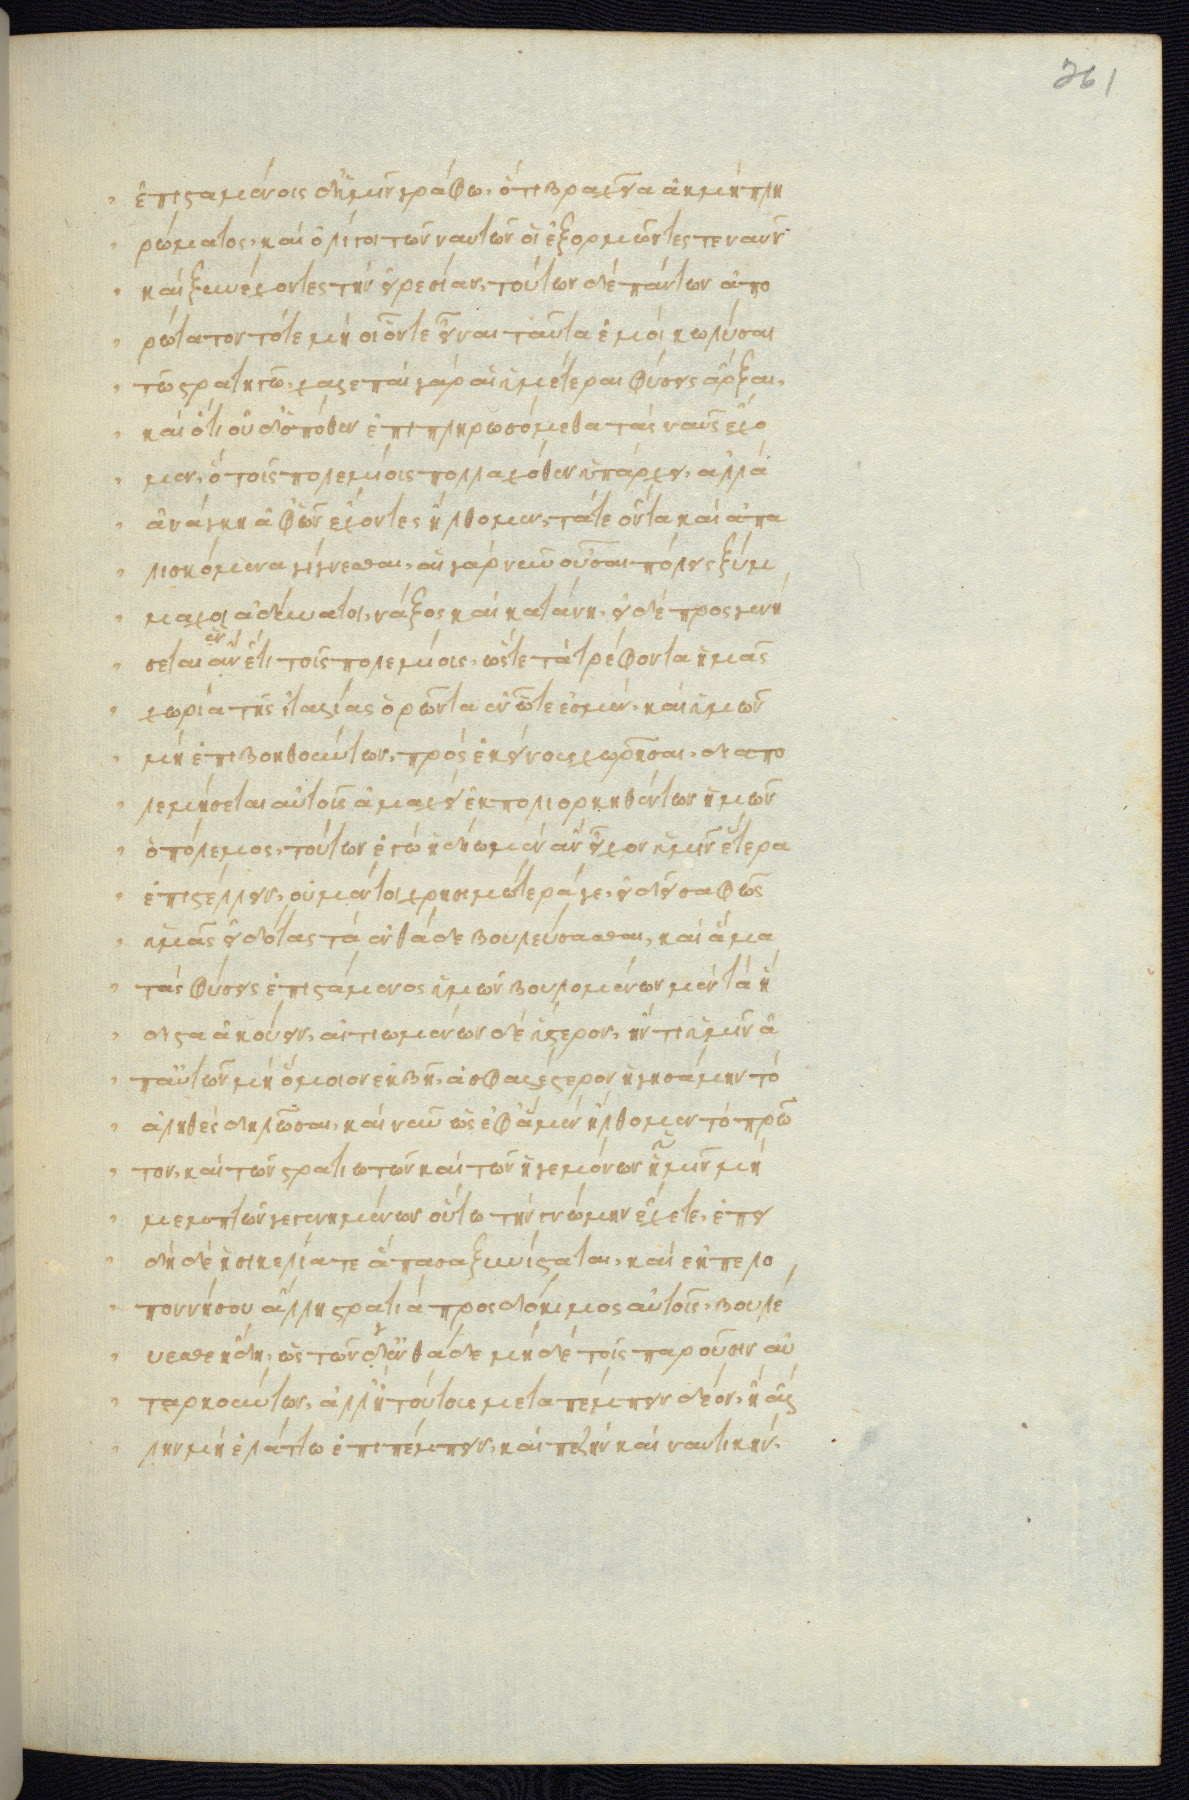 261
ἐπισταμένοις δ' ὑμῖν γράφω, ὅτι βραχεῖα ἀκμὴ πλη
ρώματος, καὶ ὀλίγοι τῶν ναυτῶν οἱ ἐξορμῶντές τε ναῦν
καὶ ξυνέχοντες τὴν εἰρεσίαν, τούτων δὲ πάντων ἀπο
ρώτατον τό τε μὴ οἷόν τε εἶναι ταῦτα ἐμοὶ κωλῦσαι
τῷ στρατηγῷ, χαλεπαὶ γὰρ αἱ ἡμέτεραι φύσεις ἄρξαι,
καὶ ὅτι οὐδ' ὁπόθεν ἐπιπληρωσόμεθα τὰς ναῦς ἔχο
μεν, ὃ τοῖς πολεμίοις πολλαχόθεν ὑπάρχει, ἀλλὰ
ἀνάγκη ἀφ' ὧν ἔχοντες ἤλθομεν, τά τε ὄντα καὶ ἀπα
λισκόμενα γίγνεσθαι, αἱ γὰρ νῦν οὖσαι πόλεις ξύμ
μαχοι ἀδύνατοι, νάξος καὶ κατάνη, εἰ δὲ προσγενή
σεται ἓν ἔτι τοῖς πολεμίοις, ὥστε τὰ τρέφοντα ἡμᾶς
χωρία τῆς ἰταλίας ὁρῶντα ἐν ᾧ τε ἐσμέν, καὶ ἡμῶν
μὴ ἐπιβοηθούντων, πρὸς ἐκείνους χωρῆσαι, διαπο
λεμήσεται αὐτοῖς ἀμαχεὶ ἐκπολιορκηθέντων ἡμῶν
ὁ πόλεμος, τούτων ἐγὼ ἡδίω μὲν ἂν εἶχον ὑμῖν ἕτερα
ἐπιστέλλειν, οὐ μέντοι χρησιμώτερά γε, εἰ δεῖ σαφῶς
ὑμᾶς εἰδότας τὰ ἐνθάδε βουλεύσασθαι, καὶ ἅμα
τὰς φύσεις ἐπιστάμενος ὑμῶν βουλομένων μὲν τὰ ἥ
διστα ἀκούειν, αἰτιωμένων δὲ ὕστερον, ἤν τι ὑμῖν ἀ
π' αὐτῶν μὴ ὅμοιον ἐκβῇ, ἀσφαλέστερον ἡγησάμην τὸ
ἀληθὲς δηλῶσαι, καὶ νῦν ὡς ἐφ' ἃ μὲν ἤλθομεν τὸ πρῶ
τον, καὶ τῶν στρατιωτῶν καὶ τῶν ἡγεμόνων ἡμῖν μὴ
μεμπτῶν γεγενημένων οὕτω τὴν γνώμην ἔχετε, ἐπει
δὴ δὲ ἡ σικελία τε ἅπασα ξυνίσταται, καὶ ἐκ πελο
ποννήσου ἄλλη στρατιὰ προσδόκιμος αὐτοῖς, βουλε
ύεσθε ἤδη, ὡς τῶν δ' ἐνθάδε μηδὲ τοῖς παροῦσιν αὐ
ταρκούντων, ἀλλ' ἢ τούτους μεταπέμπειν δέον, ἢ ἄλ
λην μὴ ἐλάττω ἐπιπέμπειν, καὶ πεζὴν καὶ ναυτικήν,